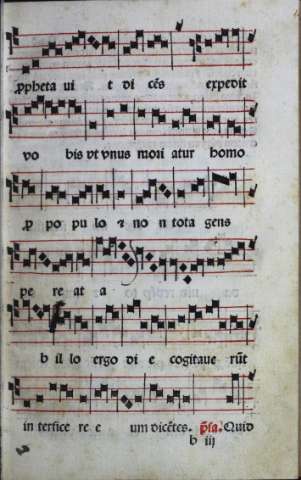 ꝓpheta ui t di cẽs expedit
vo bis vt vnus mori atur homo
ꝓ po pu lo ⁊ no n tota gens
pe re at a
b il lo ergo di e cogitaue rũt
in terfice re e um dicẽtes. p̃sa. Quid
b iij